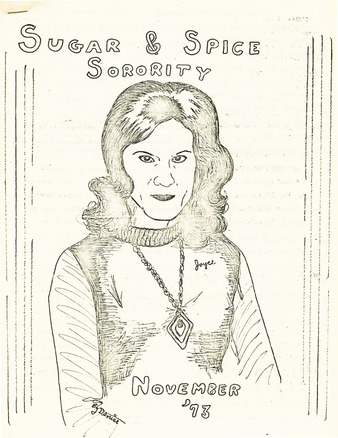 SUGAR & SPICE
SORORITY
Joyce
NOVEMBER
'73